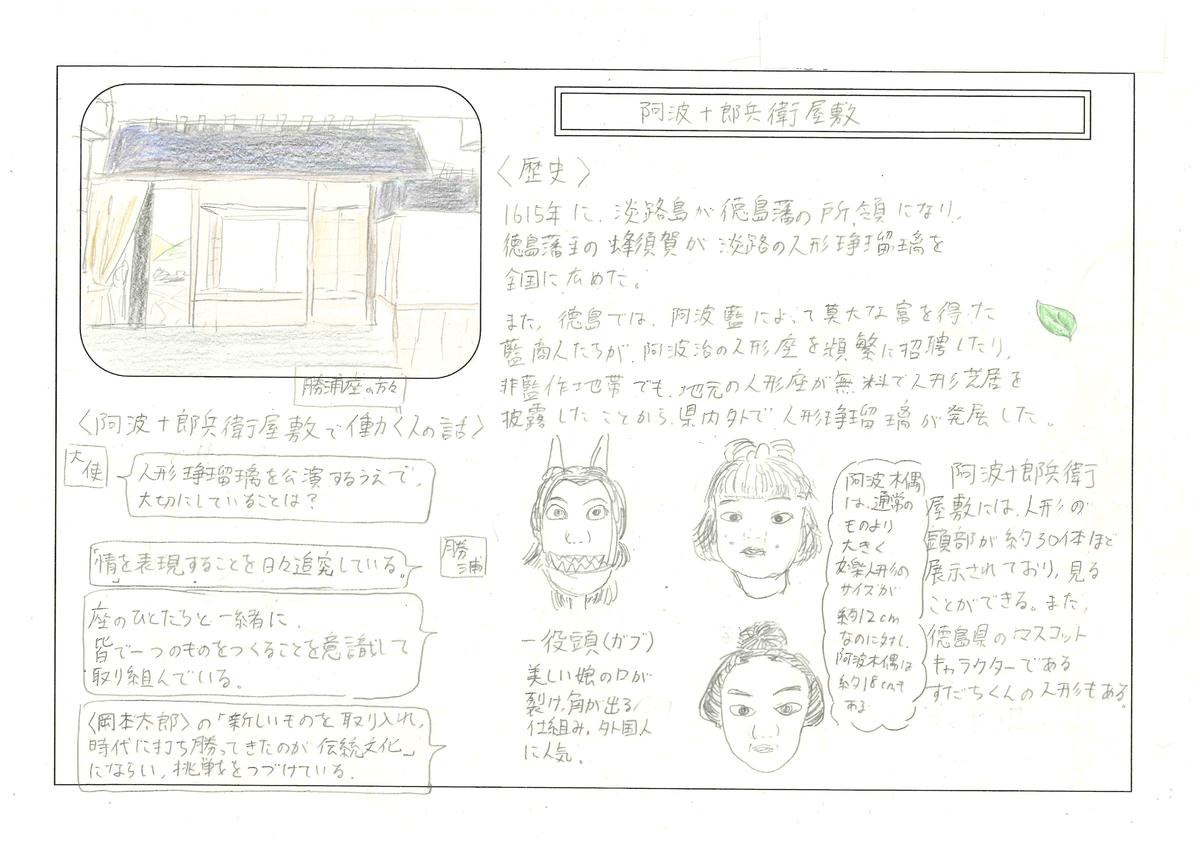 阿波十郎兵衛屋敷
〈歴史〉
1615年に、淡路島が徳島藩の所領になり、
徳島藩主の蜂須賀が淡路の人形浄瑠璃を
全国に広めた。
また、徳島では、阿波藍によって莫大な富を得た
藍商人たちが、阿波治の人形座を頻繁に招聘したり、
非藍作地帯でも、地元の人形座が無料で人形芝居を
披露したことから、県内外で人形浄瑠璃が発展した。
勝浦座の方々
〈阿波十郎兵衛屋敷で働く人の話〉
大使
人形浄瑠璃を公演するうえで、
大切にしていることは？
勝浦
「情」を表現することを日々追究している。
座のひとたちと一緒に、
皆で一つのものをつくることを意識して
取り組んでいる。
〈岡本太郎〉の「新しいものを取り入れ、
時代に打ち勝ってきたのが伝統文化」
にならい、挑戦をつづけている。
一役頭(ガブ)
美しい娘の口が
裂け、角が出る
仕組み。外国人
に人気。
阿波木偶
は、通常の
ものより
大きく
文楽人形の
サイズが
約12cm
なのに対し、
阿波木偶は
約18cmも
ある
阿波十郎兵衛
屋敷には、人形の
頭部が約30体ほど
展示されており、見る
ことができる。また、
徳島県のマスコット
キャラクターである
すだちくんの人形もある。